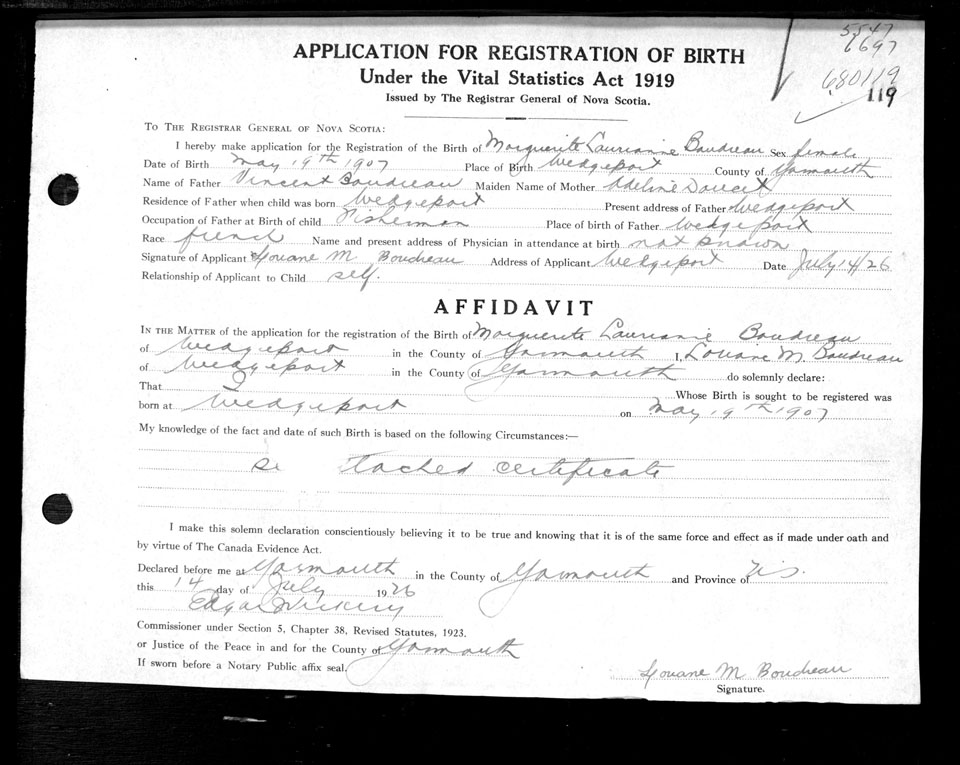 5547
6697
680119
119
APPLICATION FOR REGISTRATION OF BIRTH
Under the Vital Statistics Act 1919
Issued by The Registrar General of Nova Scotia.
TO THE REGISTRAR GENERAL OF NOVA SCOTIA:
I hereby make application for the Registration of the Birth of Marguerite Laurianne Boudreau Sex female
Date of Birth May 19th 1907 Place of Birth Wedgeport County of Yarmouth
Name of Father Vincent Boudreau Maiden Name of Mother Adeline Doucet
Residence of Father when child was born Wedgeport Present address of Father Wedgeport
Occupation of Father at Birth of child Fisherman Place of birth of Father Wedgeport
Race french Name and present address of Physician in attendance at birth not known
Signature of Applicant Louane M. Boudreau Address of Applicant Wedgeport Date July 14/26
Relationship of Applicant to Child self.
AFFIDAVIT
IN THE MATTER of the application for the registration of the Birth of Marguerite Laurianne Boudreau
of Wedgeport in the County of Yarmouth I, Louane M. Boudreau
of Wedgeport in the County of Yarmouth do solemnly declare:
That I Whose Birth is sought to be registered was
born at Wedgeport on May 19th 1907
My knowledge of the fact and date of such Birth is based on the following Circumstances:—
se tached certificate
I make this solemn declaration conscientiously believing it to be true and knowing that it is of the same force and effect as if made under oath and
by virtue of The Canada Evidence Act.
Declared before me at Yarmouth in the County of Yarmouth and Province of N.S.
this 14 day of July 1926
Edgar
Commissioner under Section 5, Chapter 38, Revised Statutes, 1923.
or Justice of the Peace in and for the County of Yarmouth
If sworn before a Notary Public affix seal.
Louane M Boudreau
Signature.